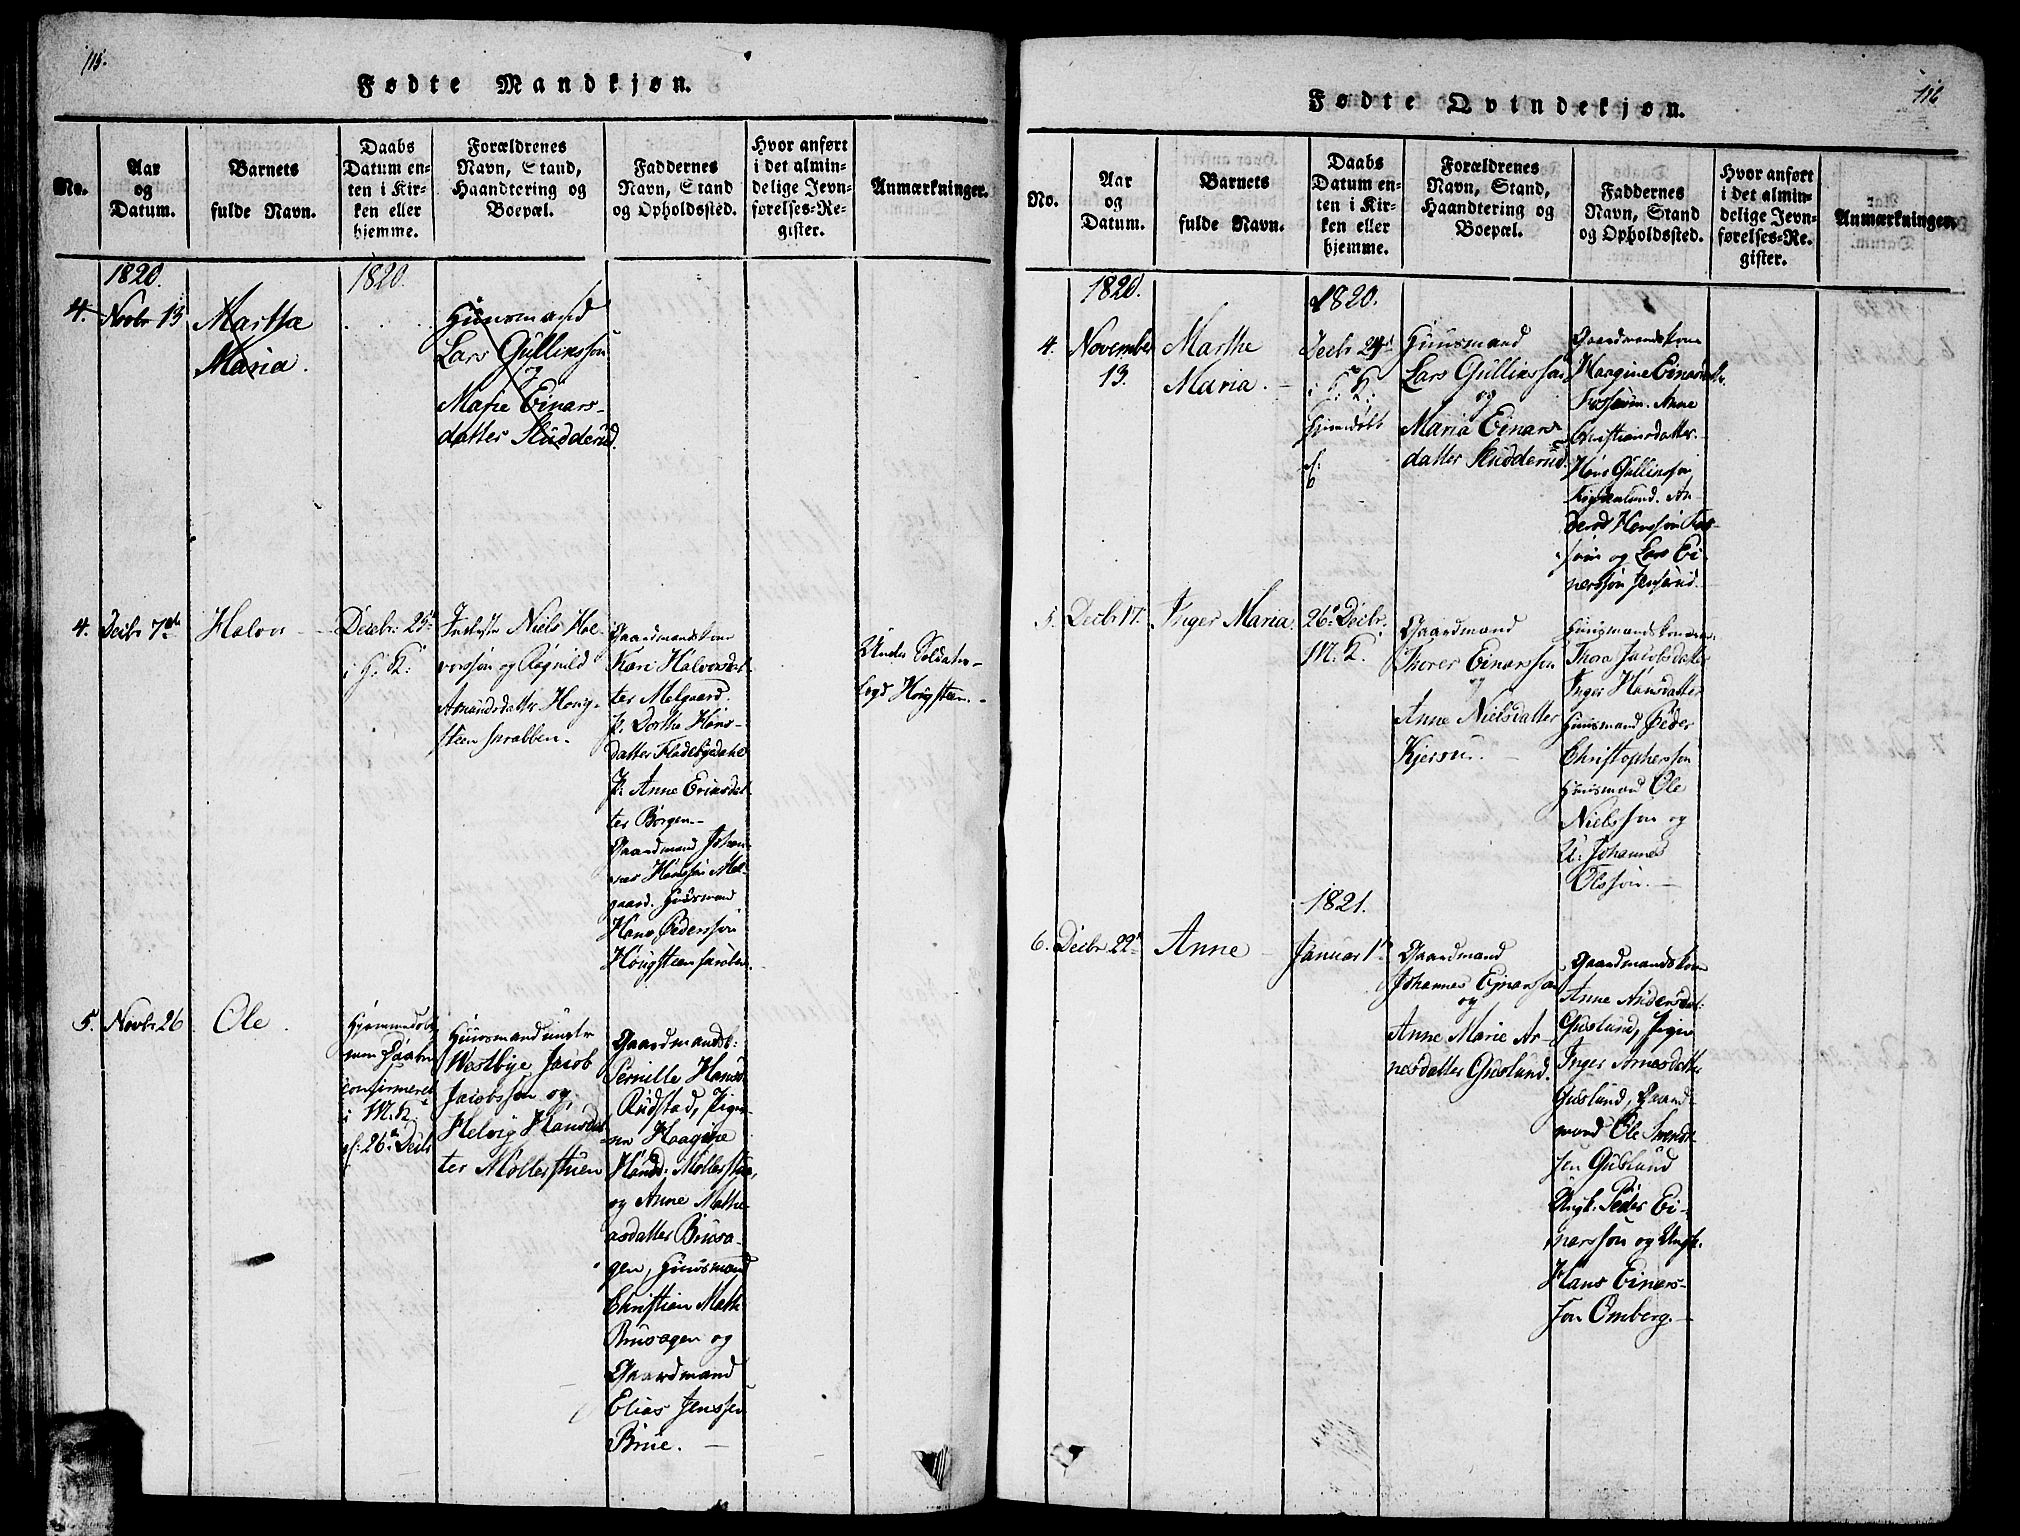 115.
Fødte Mandkjøn.
No.
Aar
og
Datum.
Barnets
fulde Navn.
Daabs
Datum en-
ten i Kir-
ken eller
hjemme.
Forældrenes
Navn, Stand,
Haandtering og
Boepæl.
Faddernes
Navn, Stand
og Opholdssted.
Hvor anført
i det almin-
delige Jevn-
førelses-Re-
gister.
Anmærkninger.
1820.
1820.
4. Novbr 13
Martha
Maria.
Huusmand
Lars Gullikssøn
og
Marie Einars-
datter Studderud.
4. Decbr 7de
Halvor
Decbr: 25de
i G: K:
Niels Hal-
vorssøn og Ragnild
Amundsdatter Houg-
steen
Gaardmandskone
Kari Halvorsdat-
ter Melgaard.
P: Dorthe Hans-
datter Fladebyedalen
P: Anne Ericsdat-
ter Borgen.
Gaardmand Johan-
nes Hanssøn Mel-
gaard. Huusmand
Hans Pederssøn
Under Soldater-
Legd Hougsteen.
5. Novbr 26
Ole.
Daaben
confirmeret
i M. K.
d: 26de Decbr
Huusmand under
Westbye Jacob
Jacobssøn og
Helvig Hansdat-
ter Møllerstuen
Gaardmandsk:
Pernille Hansd:
Rudstad, Piger-
ne Haagine
Hansd: Møllerstuen,
og Anne Mathi-
asdatter Bruesa-
gen, Huusmand
Christian Math:
Bruesagen og
Gaardmand
Elias Jenssen
Brue.
116
Fødte Qvindekjøn.
No.
Aar
og
Datum.
Barnets
fulde Navn.
Daabs
Datum en-
ten i Kir-
ken eller
hjemme.
Forældrenes
Navn, Stand,
Haandtering og
Boepæl.
Faddernes
Navn, Stand
og Opholdssted.
Hvor anført
i det almin-
delige Jevn-
førelses-Re-
gister.
Anmærkninger.
1820.
1820.
4. November
13.
Marthe
Maria.
Decbr 24de
i G: K:
Hjemdøbt
Huusmand
Lars Gullikssøn
og
Maria Einars
datter Studderud.
Gaardmandskone
Haagine Einarsd:
Fosserum. Anne
Christiansdatter.
Hans Gullikssøn
An-
ders Hanssøn Fos-
serum og Lars Ei-
narssøn Jenserud.
5. Decbr 17.
Inger Maria.
26de Decbr.
M. K.
Gaardmand
Thorer Einarssøn
og
Anne Nielsdatter
Kjersu.
Huusmandskonerne
Thora Jacobsdatter
Inger Hansdatter
Huusmand Peder
Christopherssøn
Huusmand Ole
Nielssøn og
U: Johannes
Olssøn.
1821.
6. Decbr 22de
Anne
Januar 1ste
Gaardmand
Johannes Einarssøn
og
Anne Marie Ar-
nesdatter Guslund.
Gaardmandskone
Anne Andersdat:
Guslund, Pigen
Inger Arnesdatter
Guslund, Gaard-
mand Ole Svends-
søn Guslund
Ungk: Peder Ei-
narssøn og Ungk:
Hans Einars-
søn Omberg.